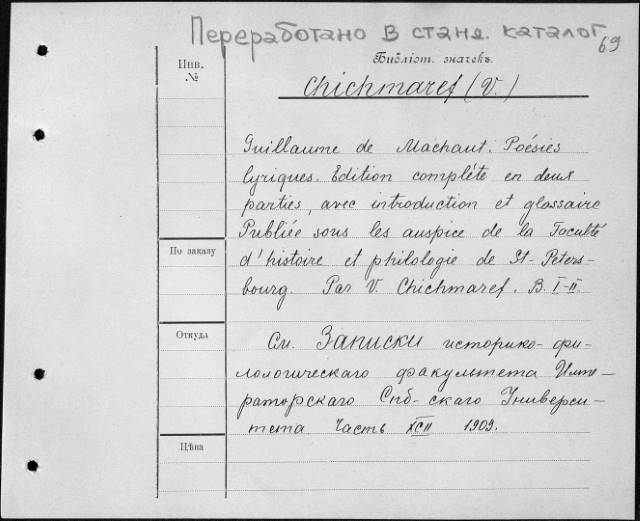 Переработано в станд. каталог
69
Инв. №
Библіот. значекъ.
Chichmaref (V.)
Guillaume de Machaut. Poésies
lyriques. Edition complète en deux
parties, avec introduction et glossaire
Publiée sous les auspice de la Faculté
По заказу
d'histoire et philologie de St-Peters-
bourg. Par V. Chichmaref. B. I-II.
Откуда
См. Записки историко-фи-
лологическаго факультета Импе-
раторскаго Спб-скаго Универси-
тета Часть XCII 1909.
Цѣна